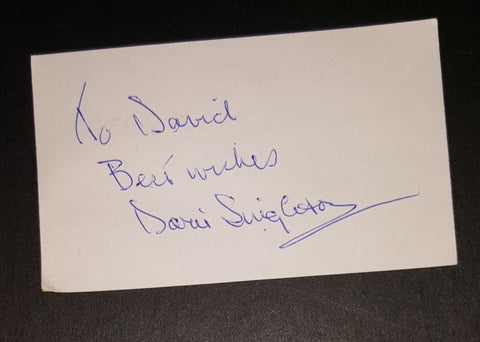 To David
Best wishes
Doris Singleton